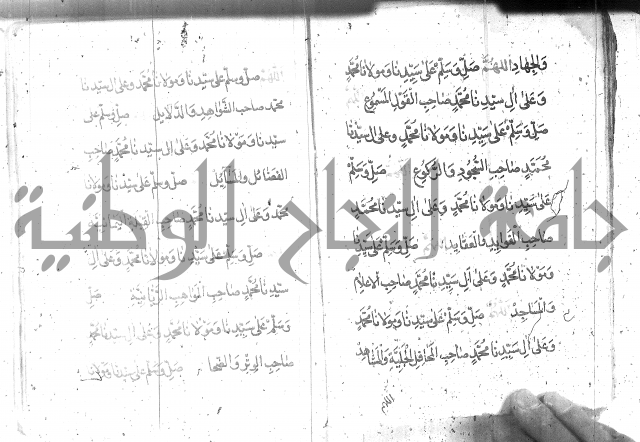 والجهاد اللهم صل وسلم على سيدنا ومولانا محمد
وعلى ال سيدنا محمد صاحب القول المسموع
صل وسلم على سيدنا ومولانا محمد وعلى ال سيدنا
محمد صاحب السجود والركوع صل وسلم
على سيدنا ومولانا محمد وعلى ال سيدنا محمد
صاحب الفوايد والعقايد صل وسلم على سيدنا
ومولانا محمد وعلى ال سيدنا محمد صاحب الاعلام
والمساجد صل وسلم على سيدنا ومولانا محمد
وعلى ال سيدنا محمد صاحب المحافل الجلية والمشاهد
اللهم
صل وسلم على سيدنا ومولانا محمد وعلى ال سيدنا
محمد صاحب الشواهد والدلايل صل وسلم على
سيدنا ومولانا محمد وعلى ال سيدنا محمد صاحب
الفضائل والمسايل صل وسلم على سيدنا ومولانا
محمد وعلى ال سيدنا محمد
صل وسلم على سيدنا ومولانا محمد وعلى ال
سيدنا محمد صاحب المواهب الربانية صل
وسلم على سيدنا ومولانا محمد وعلى ال سيدنا محمد
صاحب الوتر والضحا صل وسلم على سيدنا ومولانا
جامعة النجاح الوطنية